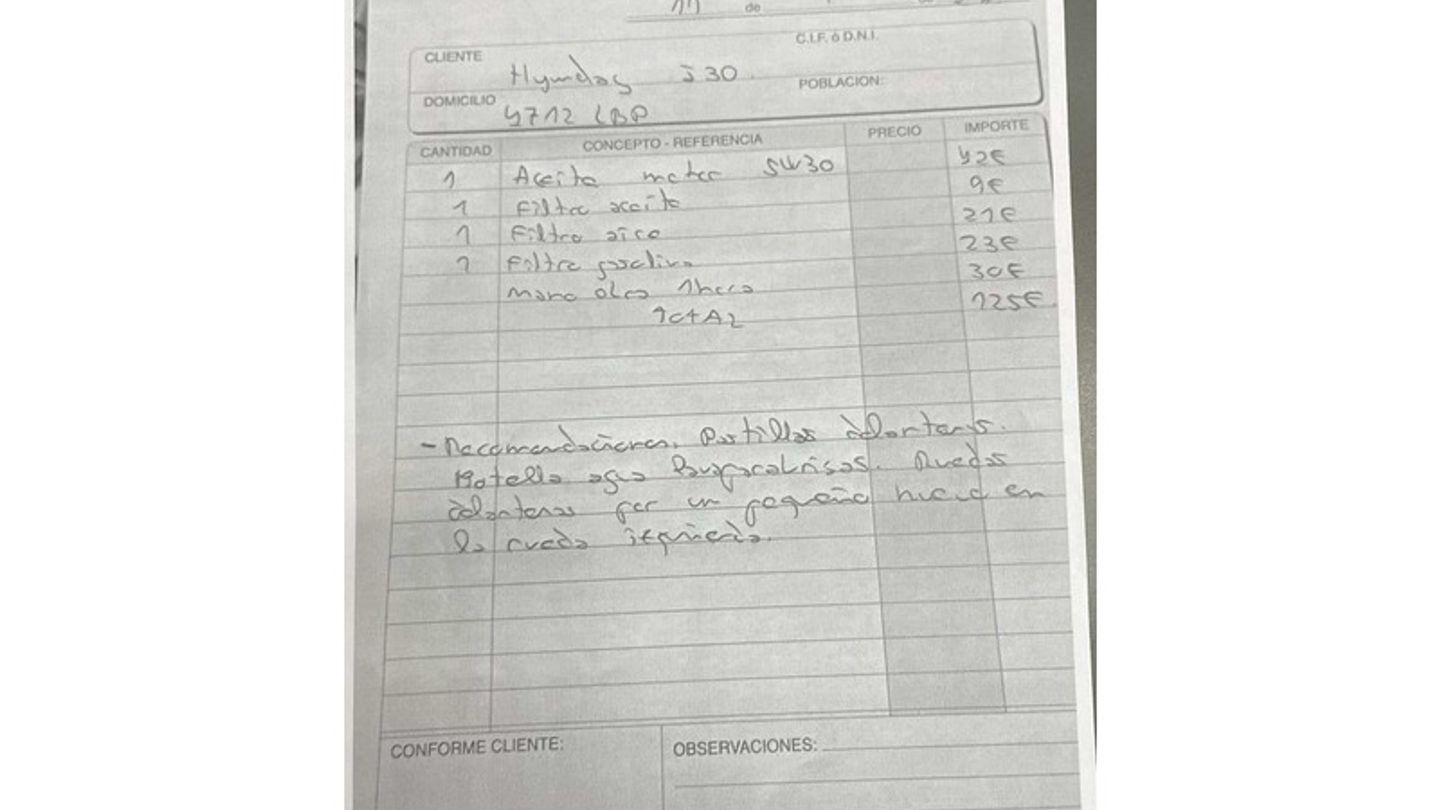 11 de
CLIENTE Hyunday i30 C.I.F. ó D.N.I.
DOMICILIO 4712 LBP POBLACION:
CANTIDAD CONCEPTO - REFERENCIA PRECIO IMPORTE
1 Aceite motor 5W30 42€
1 Filtro aceite 9€
1 Filtro aire 21€
1 Filtro gasolina 23€
Mano obra 1hora 30€
TOTAL 125€
- Recomendaciones. Pastillas delanteras.
Botella agua limpiaparabrisas. Ruedas
delanteras por un pequeño huevo en
la rueda izquierda.
CONFORME CLIENTE: OBSERVACIONES: